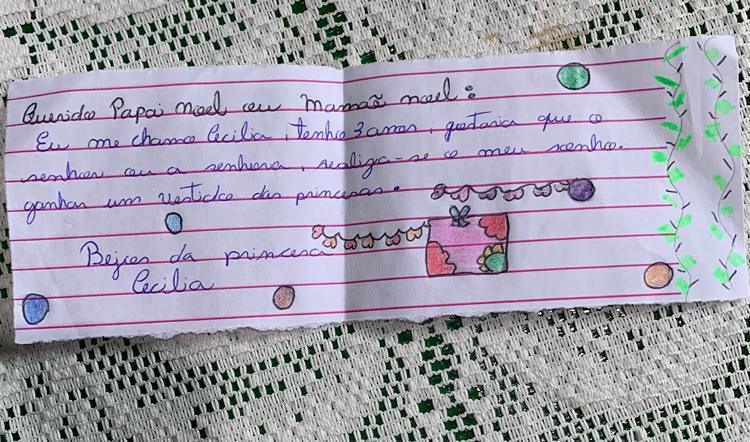 Querido Papai noel ou Mamãe noel:
Eu me chamo Cecilia, tenho 3 anos, gostaria que o
senhor ou a senhora, realiga-se o meu sonho.
ganhar um vestido das princesas.
Beijos da princesa
Cecilia